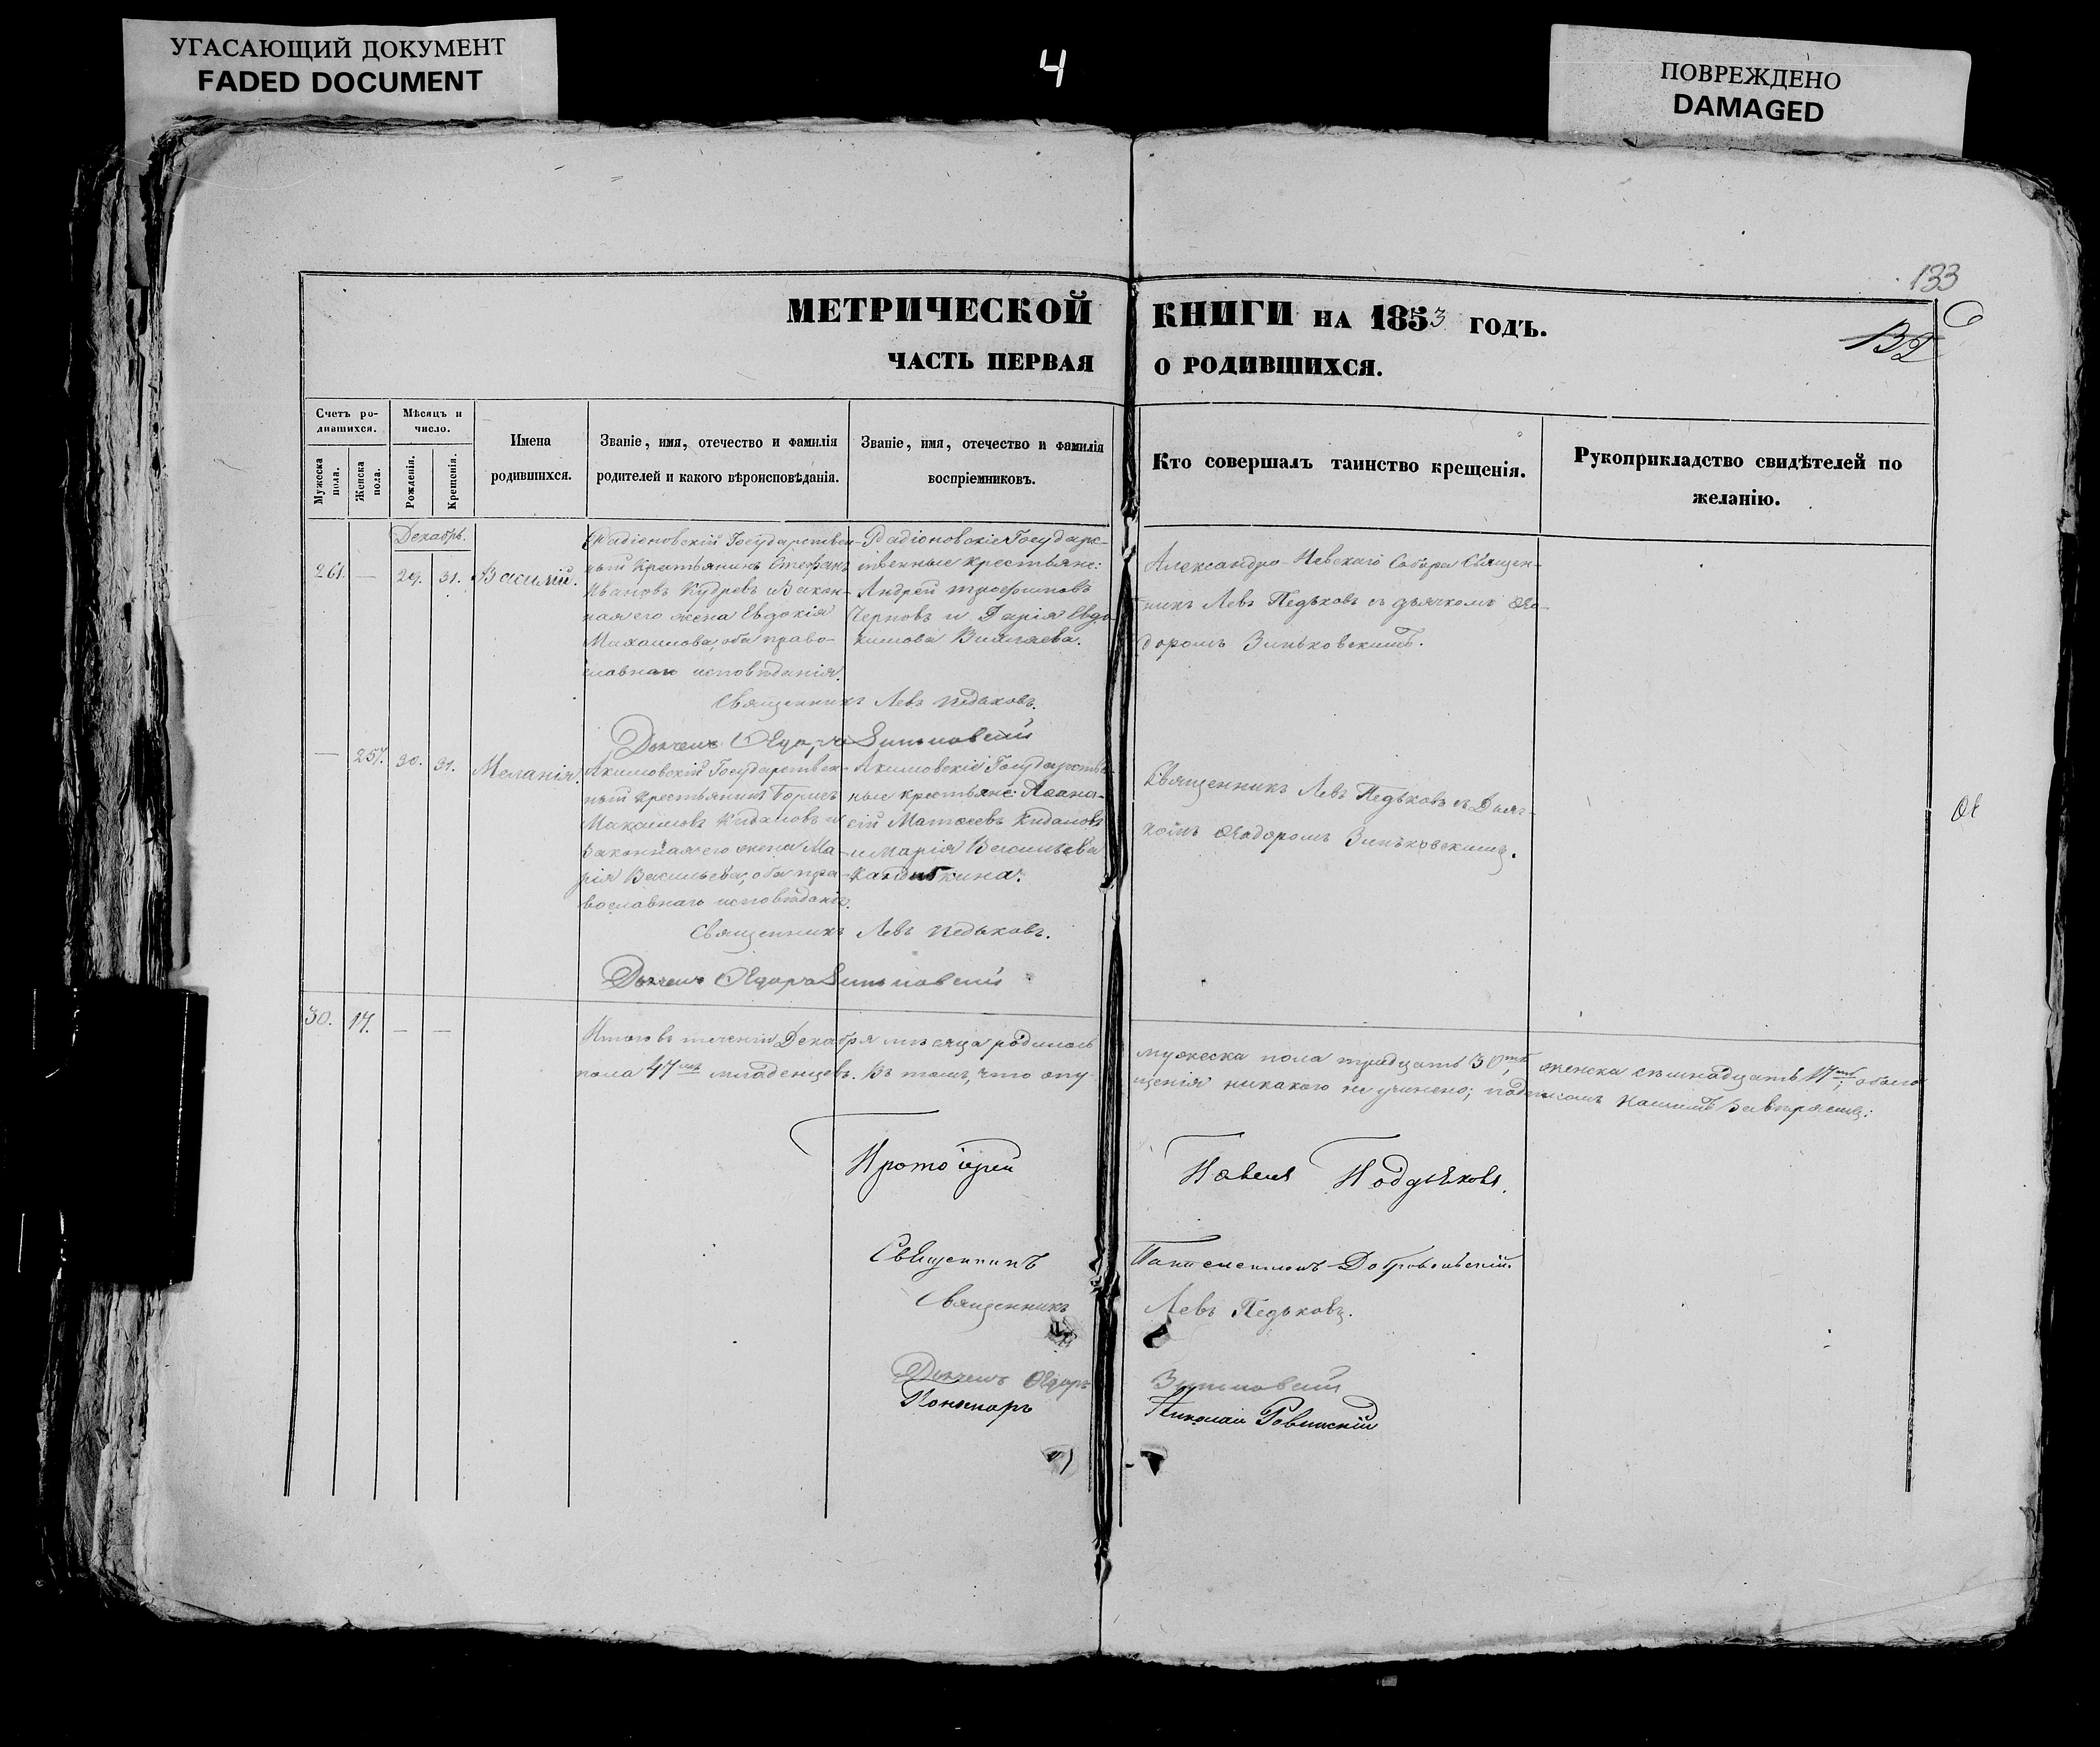 УГАСАЮЩИЙ ДОКУМЕНТ
FADED DOCUMENT
4
ПОВРЕЖДЕНО
DAMAGED
133
132
МЕТРИЧЕСКОЙ КНИГИ НА 1853 ГОДЪ.
ЧАСТЬ ПЕРВАЯ О РОДИВШИХСЯ.
Счетъ ро-
дившихся.
Мужеска
пола.
Женска
пола.
Мѣсяцъ и
число.
Рожденія.
Крещенія.
Имена
родившихся.
Званіе, имя, отечество и фамилія
родителей и какого вѣроисповѣданія.
Званіе, имя, отечество и фамилія
воспріемниковъ.
Кто совершалъ таинство крещенія.
Рукоприкладство свидѣтелей по
желанію.
Декабрь.
261. — 29. 31. Василій.
Радіоновскій Государствен-
ный Крестьянинъ Стефанъ
Ивановъ Кудревъ и Закон-
ная его жена Евдокія
оба право-
славнаго исповѣданія.
Радіоновскіе Государс-
твенные крестьяне:
Андрей Трофимовъ
Черновъ и Дарія Евдо-
кимова
Александро-Невскаго Собора Священ-
никъ Левъ Педьковъ съ дьячкомъ Ѳео-
доромъ Зиньковскимъ.
Священникъ Левъ Педьковъ.
Дьячекъ Ѳеодоръ Зиньковскій
— 257. 30. 31. Меланія.
Акимовскій Государствен-
ный Крестьянинъ Борисъ
Максимовъ Кидаловъ и
Законная его жена Ма-
рія Васильева, оба пра-
вославнаго исповѣданія.
Акимовскіе Государствен-
ные крестьяне: Аѳана-
сій Матѳеевъ Кидаловъ
и Марія Васильева
Священникъ Левъ Педьковъ съ Дьяч-
комъ Ѳеодоромъ Зиньковскимъ.
Священникъ Левъ Педьковъ.
Дьячекъ Ѳеодоръ Зиньковскій
30. 17. — —
Итого въ теченіи Декабря мѣсяца родилось мужеска пола тридцать 30ть, женска семнадцать 17ть, обоего
пола 47мь младенцевъ. Въ томъ, что опущенія никакого не учинено; подписомъ нашимъ
Протоіерей Павелъ Поддьяковъ.
Священникъ Пантелеимонъ Добровольскій.
Священникъ Левъ Педьковъ.
Дьячекъ Ѳеодоръ Зиньковскій
Пономарь Николай Ровинскій